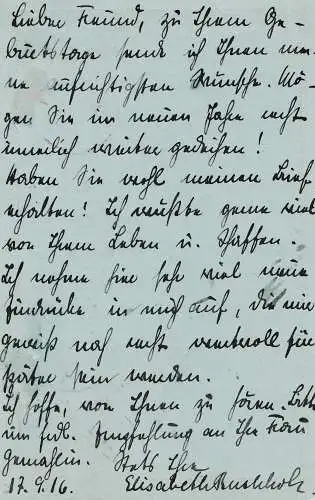 Lieber Freund, zu Ihrem Ge-
burtstage sende ich Ihnen mei-
ne aufrichtigsten Wünsche. Mö-
gen Sie im neuen Jahre recht
weiter gedeihen!
Haben Sie wohl meinen Brief
erhalten? Ich wüßte gerne viel
von Ihrem Leben u. Schaffen.
Ich nehme hier sehr viel neue
Eindrücke in mich auf, die mir
gewiß noch recht wertvoll für
später sein werden.
Ich hoffe, von Ihnen zu hören. Bitte
um frdl. Empfehlung an Ihre Frau
Gemahlin. Stets Ihre
17.9.16. Elisabeth Buchholz